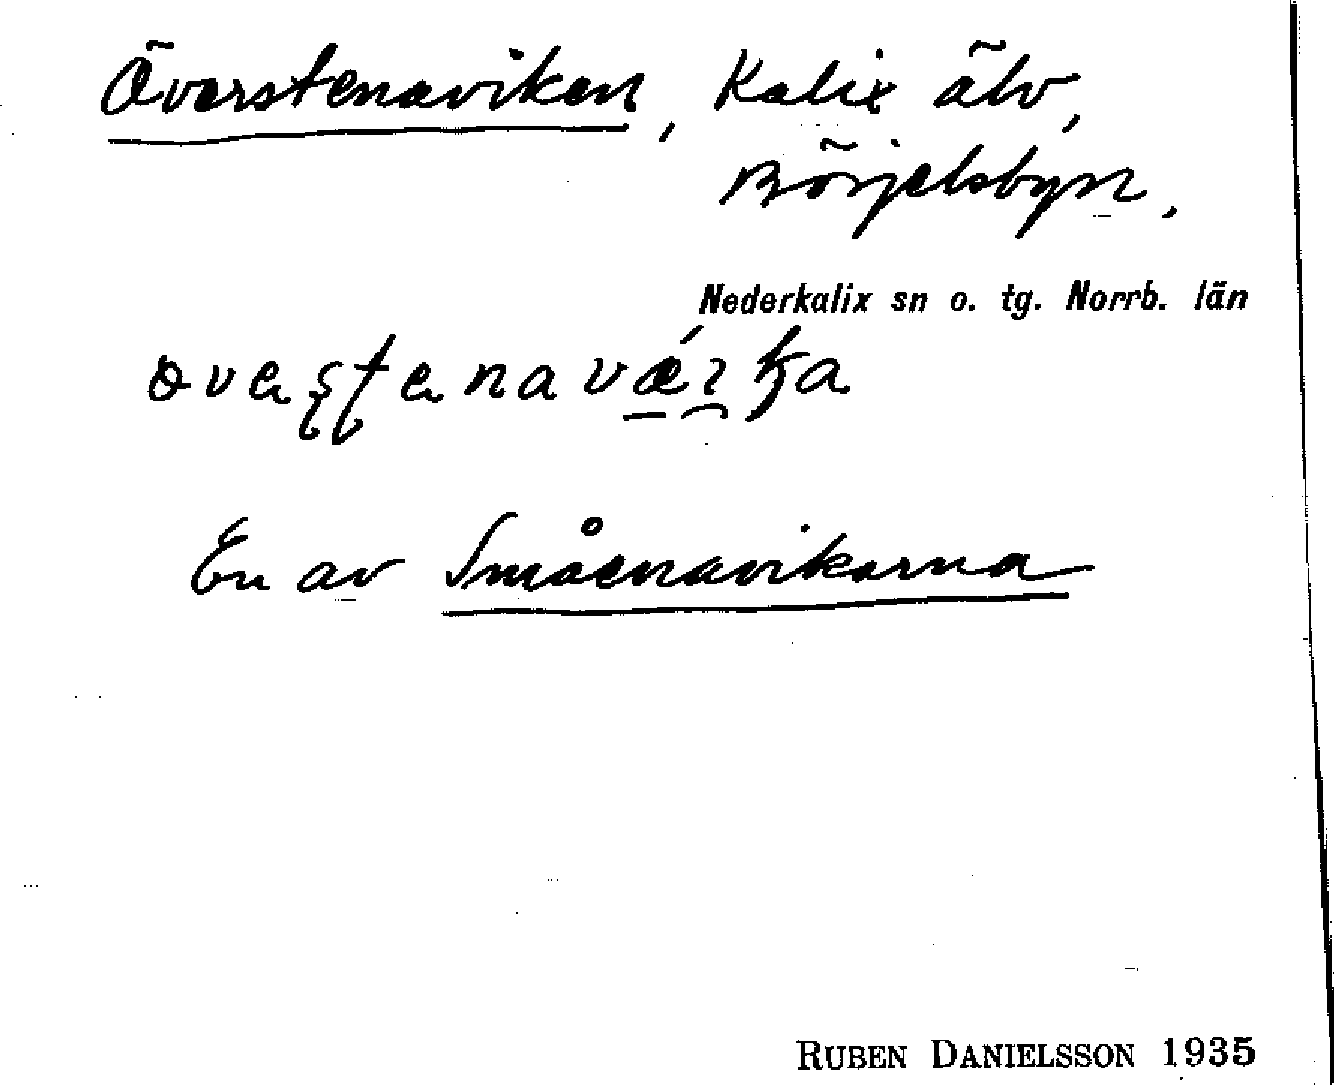 Överstenaviken, Kalix älv,
Börjelsbyn.
Nederkalix sn o. tg. Norrb. län
En av Småenavikarna
RUBEN DANIELSSON 1935